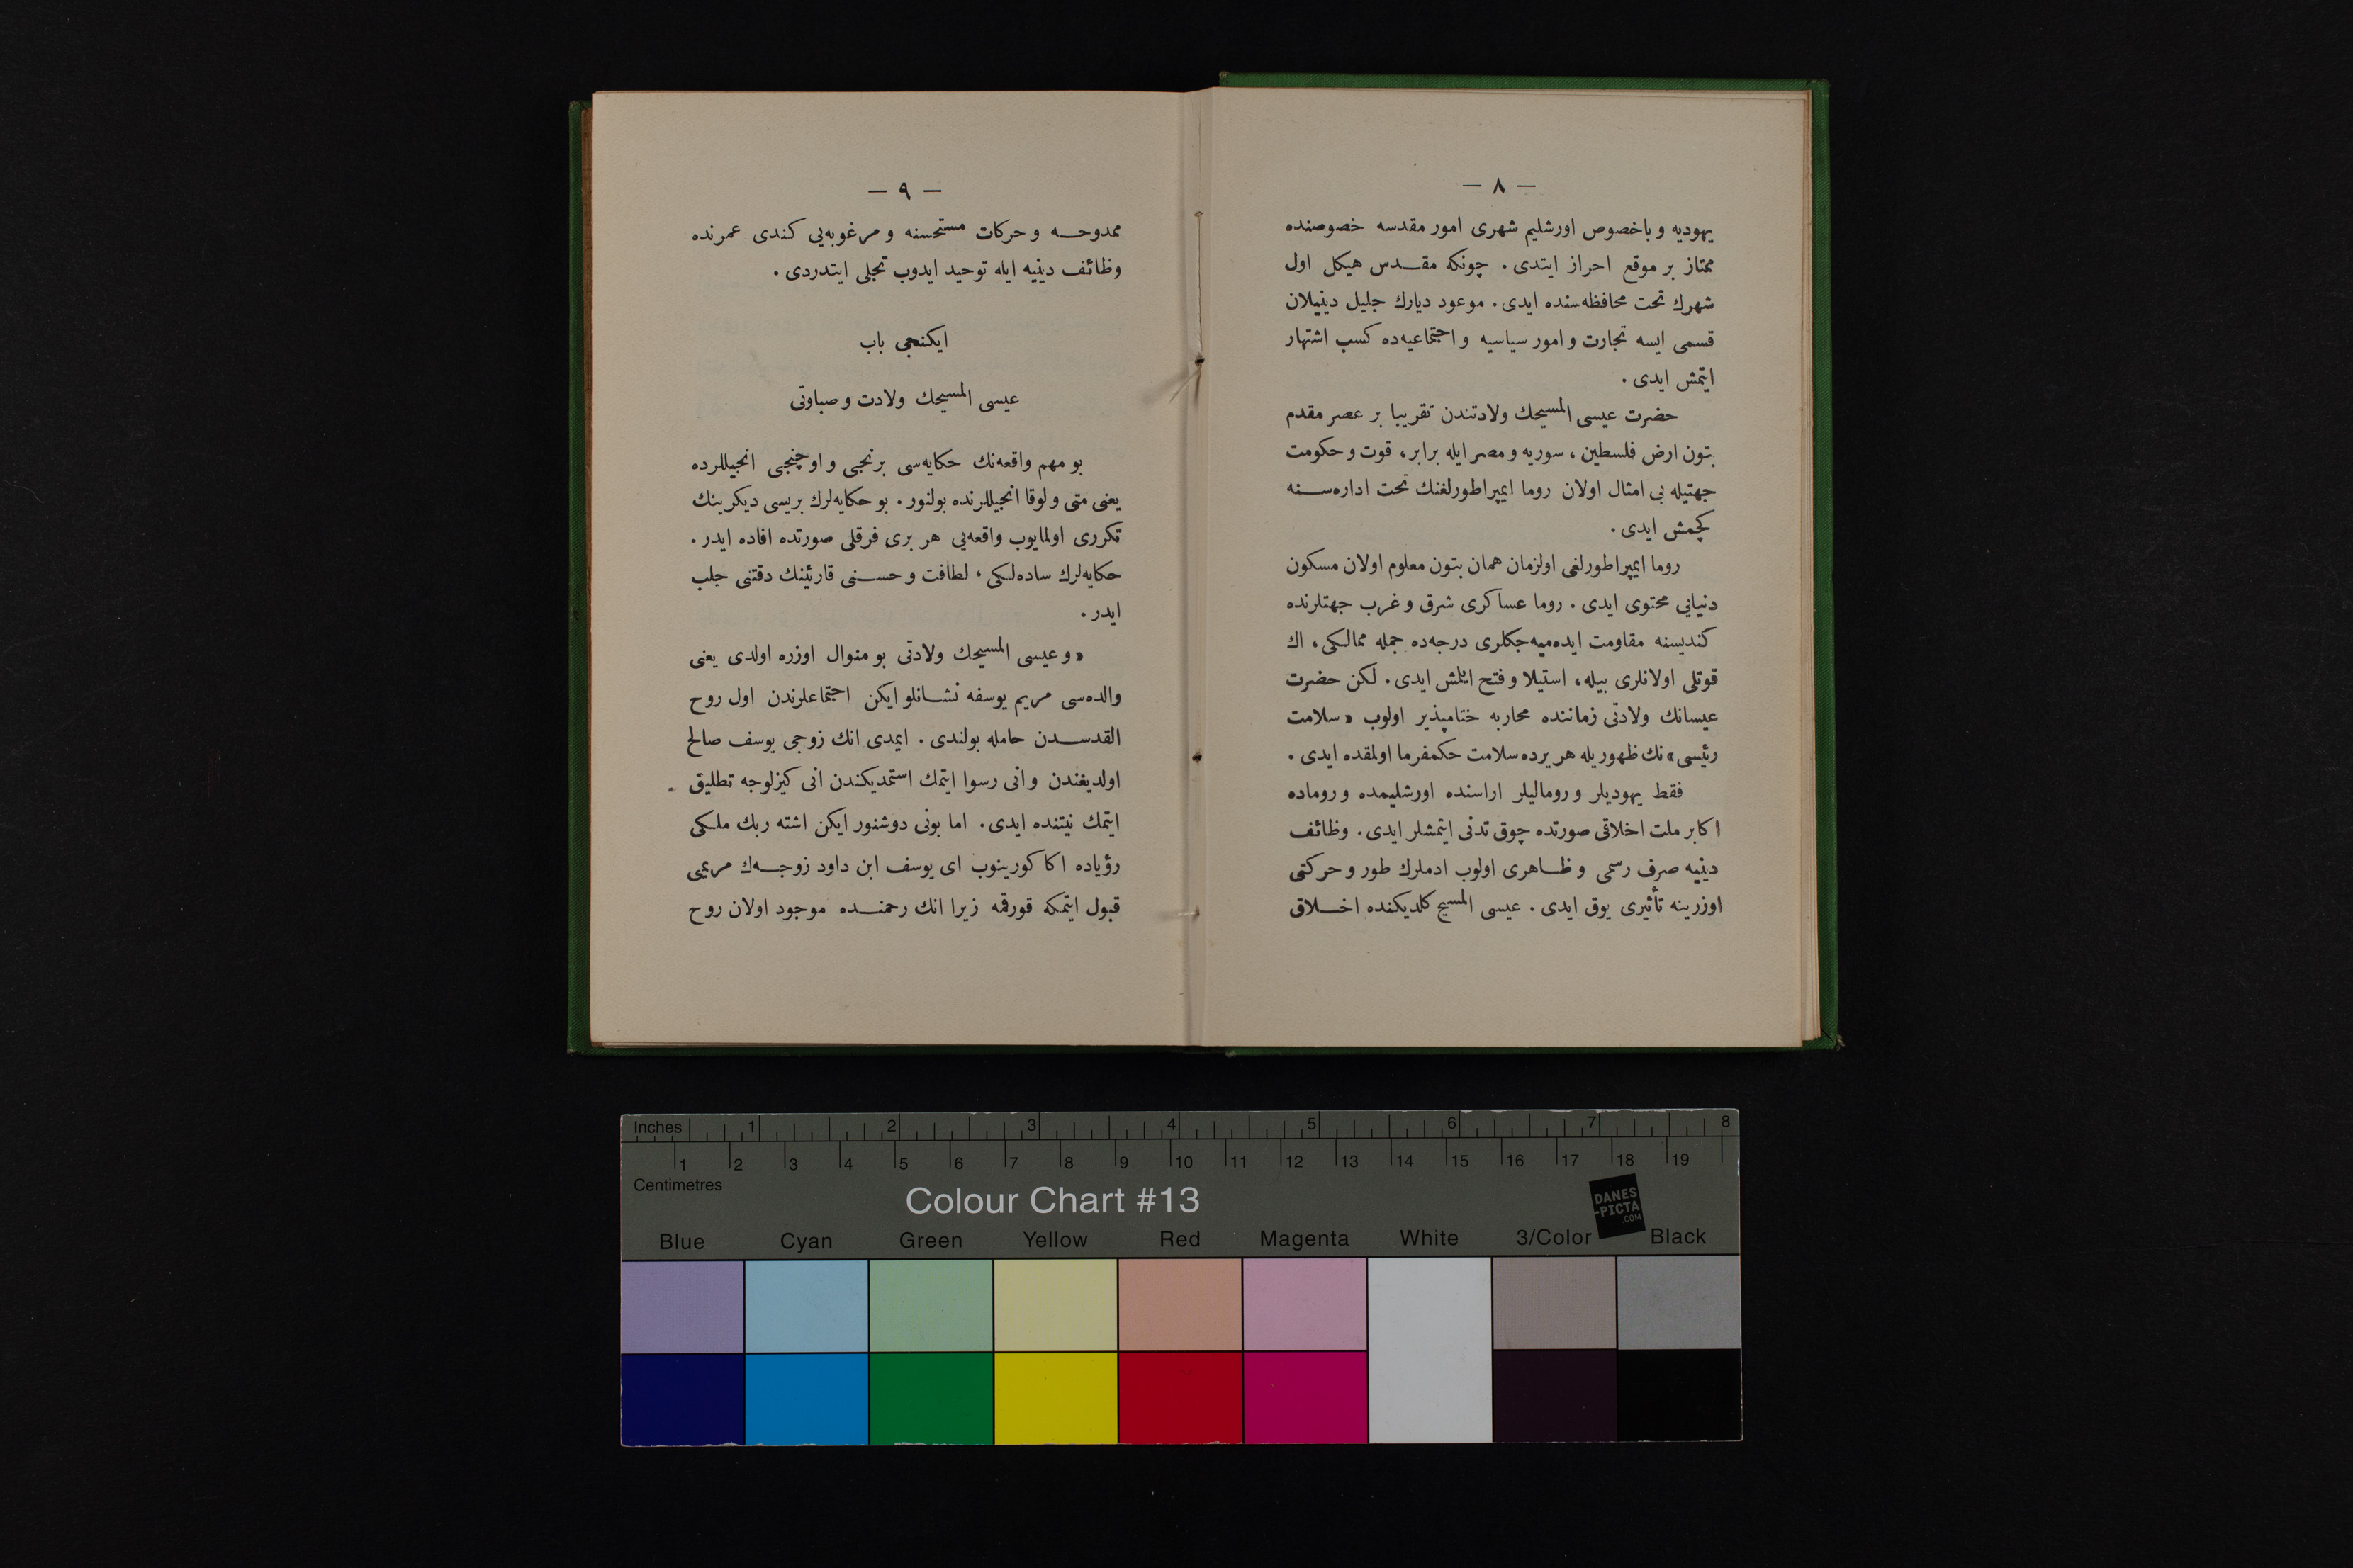 — ٨ —
يهوديه و باخصوص اورشليم شهرى امور مقدسه خصوصنده
ممتاز بر موقع احراز ايتدى . چونكه مقدس هيكل اول
شهرك تحت محافظه‌سنده ايدى . موعود ديارك جليل دينيلان
قسمى ايسه تجارت و امور سياسيه و اجتماعيه‌ده كسب اشتهار
ايتمش ايدى .
حضرت عيسى المسيحك ولادتندن تقريبا بر عصر مقدم
بتون ارض فلسطين ، سوريه و مصر ايله برابر ، قوت و حكومت
جهتيله بى امثال اولان روما ايمپراطورلغنك تحت اداره‌سنه
كچمش ايدى .
روما ايمپراطورلغى اولزمان همان بتون معلوم اولان مسكون
دنيايى محتوى ايدى . روما عساكرى شرق و غرب جهتلرنده
كنديسنه مقاومت ايده‌ميه‌جكلرى درجه‌ده جمله ممالكى ، اك
قوتلى اولانلرى بيله ، استيلا و فتح ايلمش ايدى . لكن حضرت
عيسانك ولادتى زماننده محاربه ختامپذير اولوب « سلامت
رئيسى » نك ظهوريله هر يرده سلامت حكمفرما اولمقده ايدى .
فقط يهوديلر و روماليلر اراسنده اورشليمده و روماده
اكابر ملت اخلاقى صورتده چوق تدنى ايتمشلر ايدى . وظائف
دينيه صرف رسمى و ظاهرى اولوب ادملرك طور و حركتى
اوزرينه تأثيرى يوق ايدى . عيسى المسيح كلديكنده اخلاق
— ٩ —
ممدوحه و حركات مستحسنه و مرغوبه‌يى كندى عمرنده
وظائف دينيه ايله توحيد ايدوب تجلى ايتدردى .
ايكنجى باب
عيسى المسيحك ولادت و صباوتى
بو مهم واقعه‌نك حكايه‌سى برنجى و اوچنجى انجيللرده
يعنى متى و لوقا انجيللرنده بولنور . بو حكايه‌لرك بريسى ديكرينك
تكررى اولمايوب واقعه‌يى هر برى فرقلى صورتده افاده ايدر .
حكايه‌لرك ساده‌لكى ، لطافت و حسنى قارئينك دقتنى جلب
ايدر .
« و عيسى المسيحك ولادتى بو منوال اوزره اولدى يعنى
والده‌سى مريم يوسفه نشانلو ايكن اجتماعلرندن اول روح
القدسدن حامله بولندى . ايمدى انك زوجى يوسف صالح
اولديغندن و انى رسوا ايتمك استمديكندن انى كيزلوجه تطليق
ايتمك نيتنده ايدى . اما بونى دوشنور ايكن اشته ربك ملكى
رؤياده اكا كورينوب اى يوسف ابن داود زوجه‌ك مريمى
قبول ايتمكه قورقمه زيرا انك رحمنده موجود اولان روح
Inches 1 2 3 4 5 6 7 8
1 2 3 4 5 6 7 8 9 10 11 12 13 14 15 16 17 18 19
Centimetres
Colour Chart #13
DANES
-PICTA
.COM
Blue Cyan Green Yellow Red Magenta White 3/Color Black